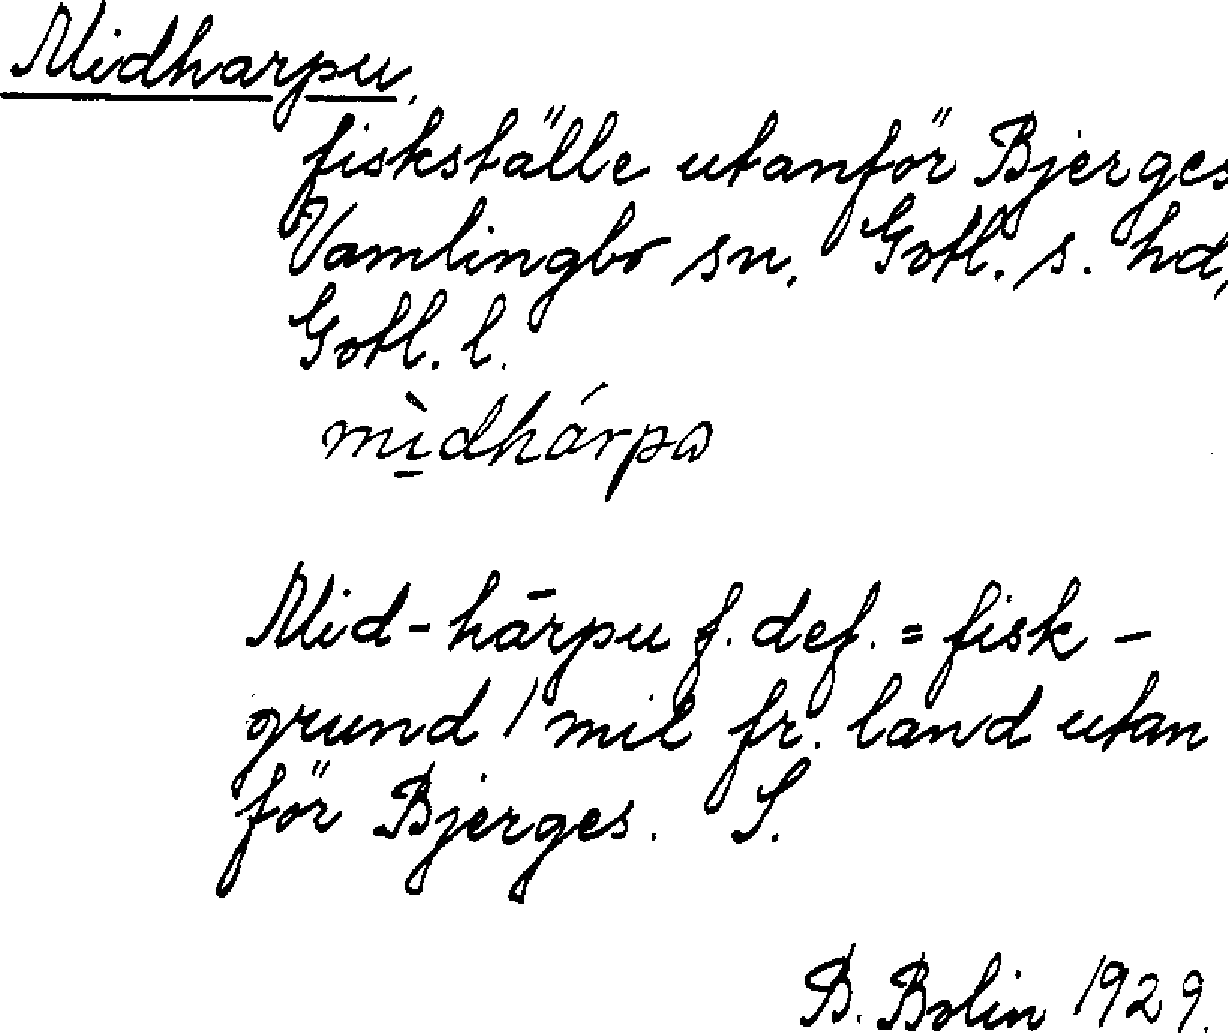 Midharpu,
fiskställe utanför Bjerges
Vamlingbo sn. Gotl. s. hd,
Gotl. l.
mì̠dhárpɷ
Mid-hārpu f. def. = fisk-
grund 1 mil fr. land utan
för Bjerges. S.
B. Bolin 1929.